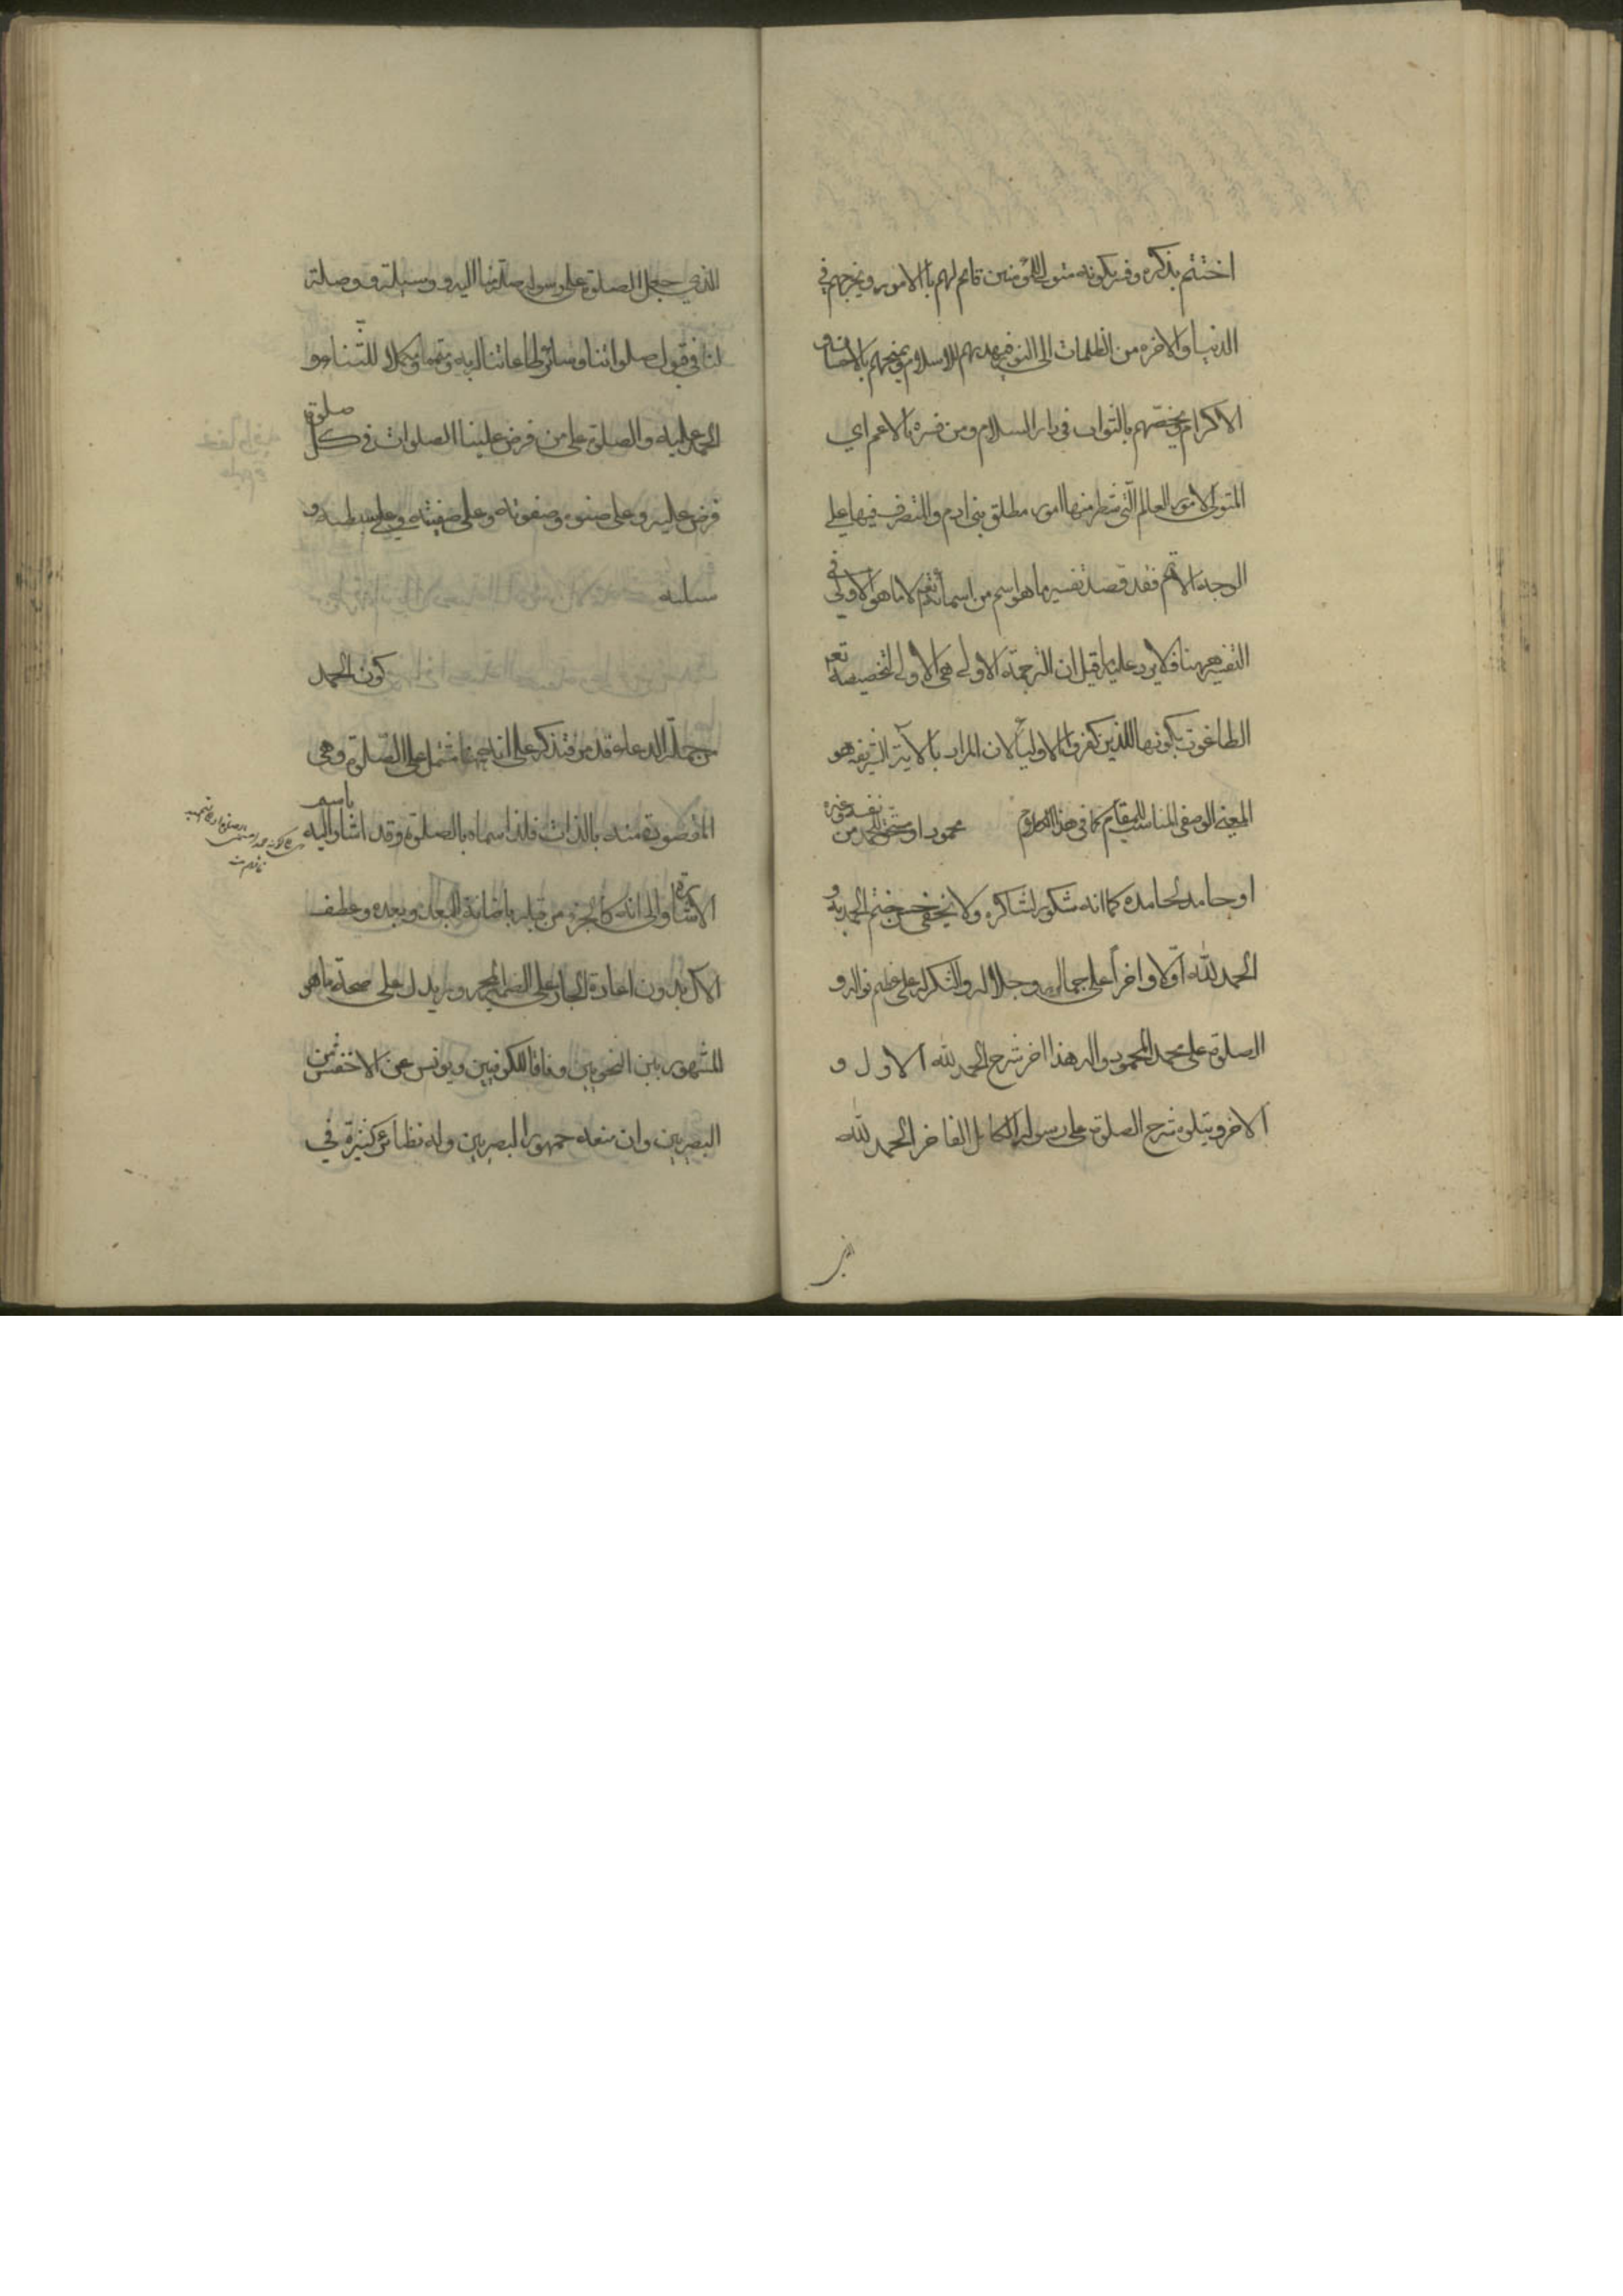 اختتم بذكره وفسر بكونه متولي للمؤمنين قائم لهم باالامور ويخرجهم في
الدنيا والاخره من الظلمات الى النور فيهديهم للاسلام ويمنحهم بالاحسان و
الاكرام ويختصهم بالثواب في دار السلام ومن فسره بالاعم اي
المتولي لامور العالم التي شطر منها امور مطلق بني ادم والتصرف فيها على
الوجه الاتم فقد قصد تفسير ما هو اسم من اسمائه تعم لا ما هو الاولى في
التفسير ههنا فلا يرد عليه ما قيل ان الترجمة الاولى هي الاولى لتخصيصه تعم
الطاغوت بكونها للذين كفروا اولياء لان المراد بالآية الشريفه هو
المعنى الوصفي المناسب للمقام كما في هذا محمود او مستحق للحمد من نفسه وغيره
او حامد لحامده كما انه شكور لشاكره ولا يخفى حسن ختم الحمد به و
الحمد لله اولا واخرا على جماله وجلاله والشكر له على نواله و
الصلوة على محمد المحمود واله هذا اخر شرح الحمد لله الاول و
الاخر ويتلوه شرح الصلوة على رسوله الكامل الفاخر الحمد لله
الذي جعل الصلوة على رسوله صلة منا اليه ووسيلة ووصلة
لنا في قبول صلواتنا وسائر طاعاتنا لديه ومتمما ومكملا للثناء و
الحمد عليه والصلوة على من فرض علينا الصلوات في كل صلوة
فرض عليه وعلى صنوه وصفوته وعلى صفيته وعلى سبطيه و
سليله
كون الحمد
من جملة الدعاء قد مر فتذكر على انه ههنا مشتمل على الصلوة وهي
المقصودة منه بالذات فلذا سماه بالصلوة وقد اشار اليه باسم
الاشارة والى انه كالجزء من قبله باضافة البعد وبعده وعطف
الآل بدون اعادة الجار على الضمير المجرور يدل على صحة ما هو
المشهور بين النحويين وفاقا للكوفيين ويونس عن الاخفش من
البصريين وان منعه جمهور البصريين وله نظائر كثيرة في